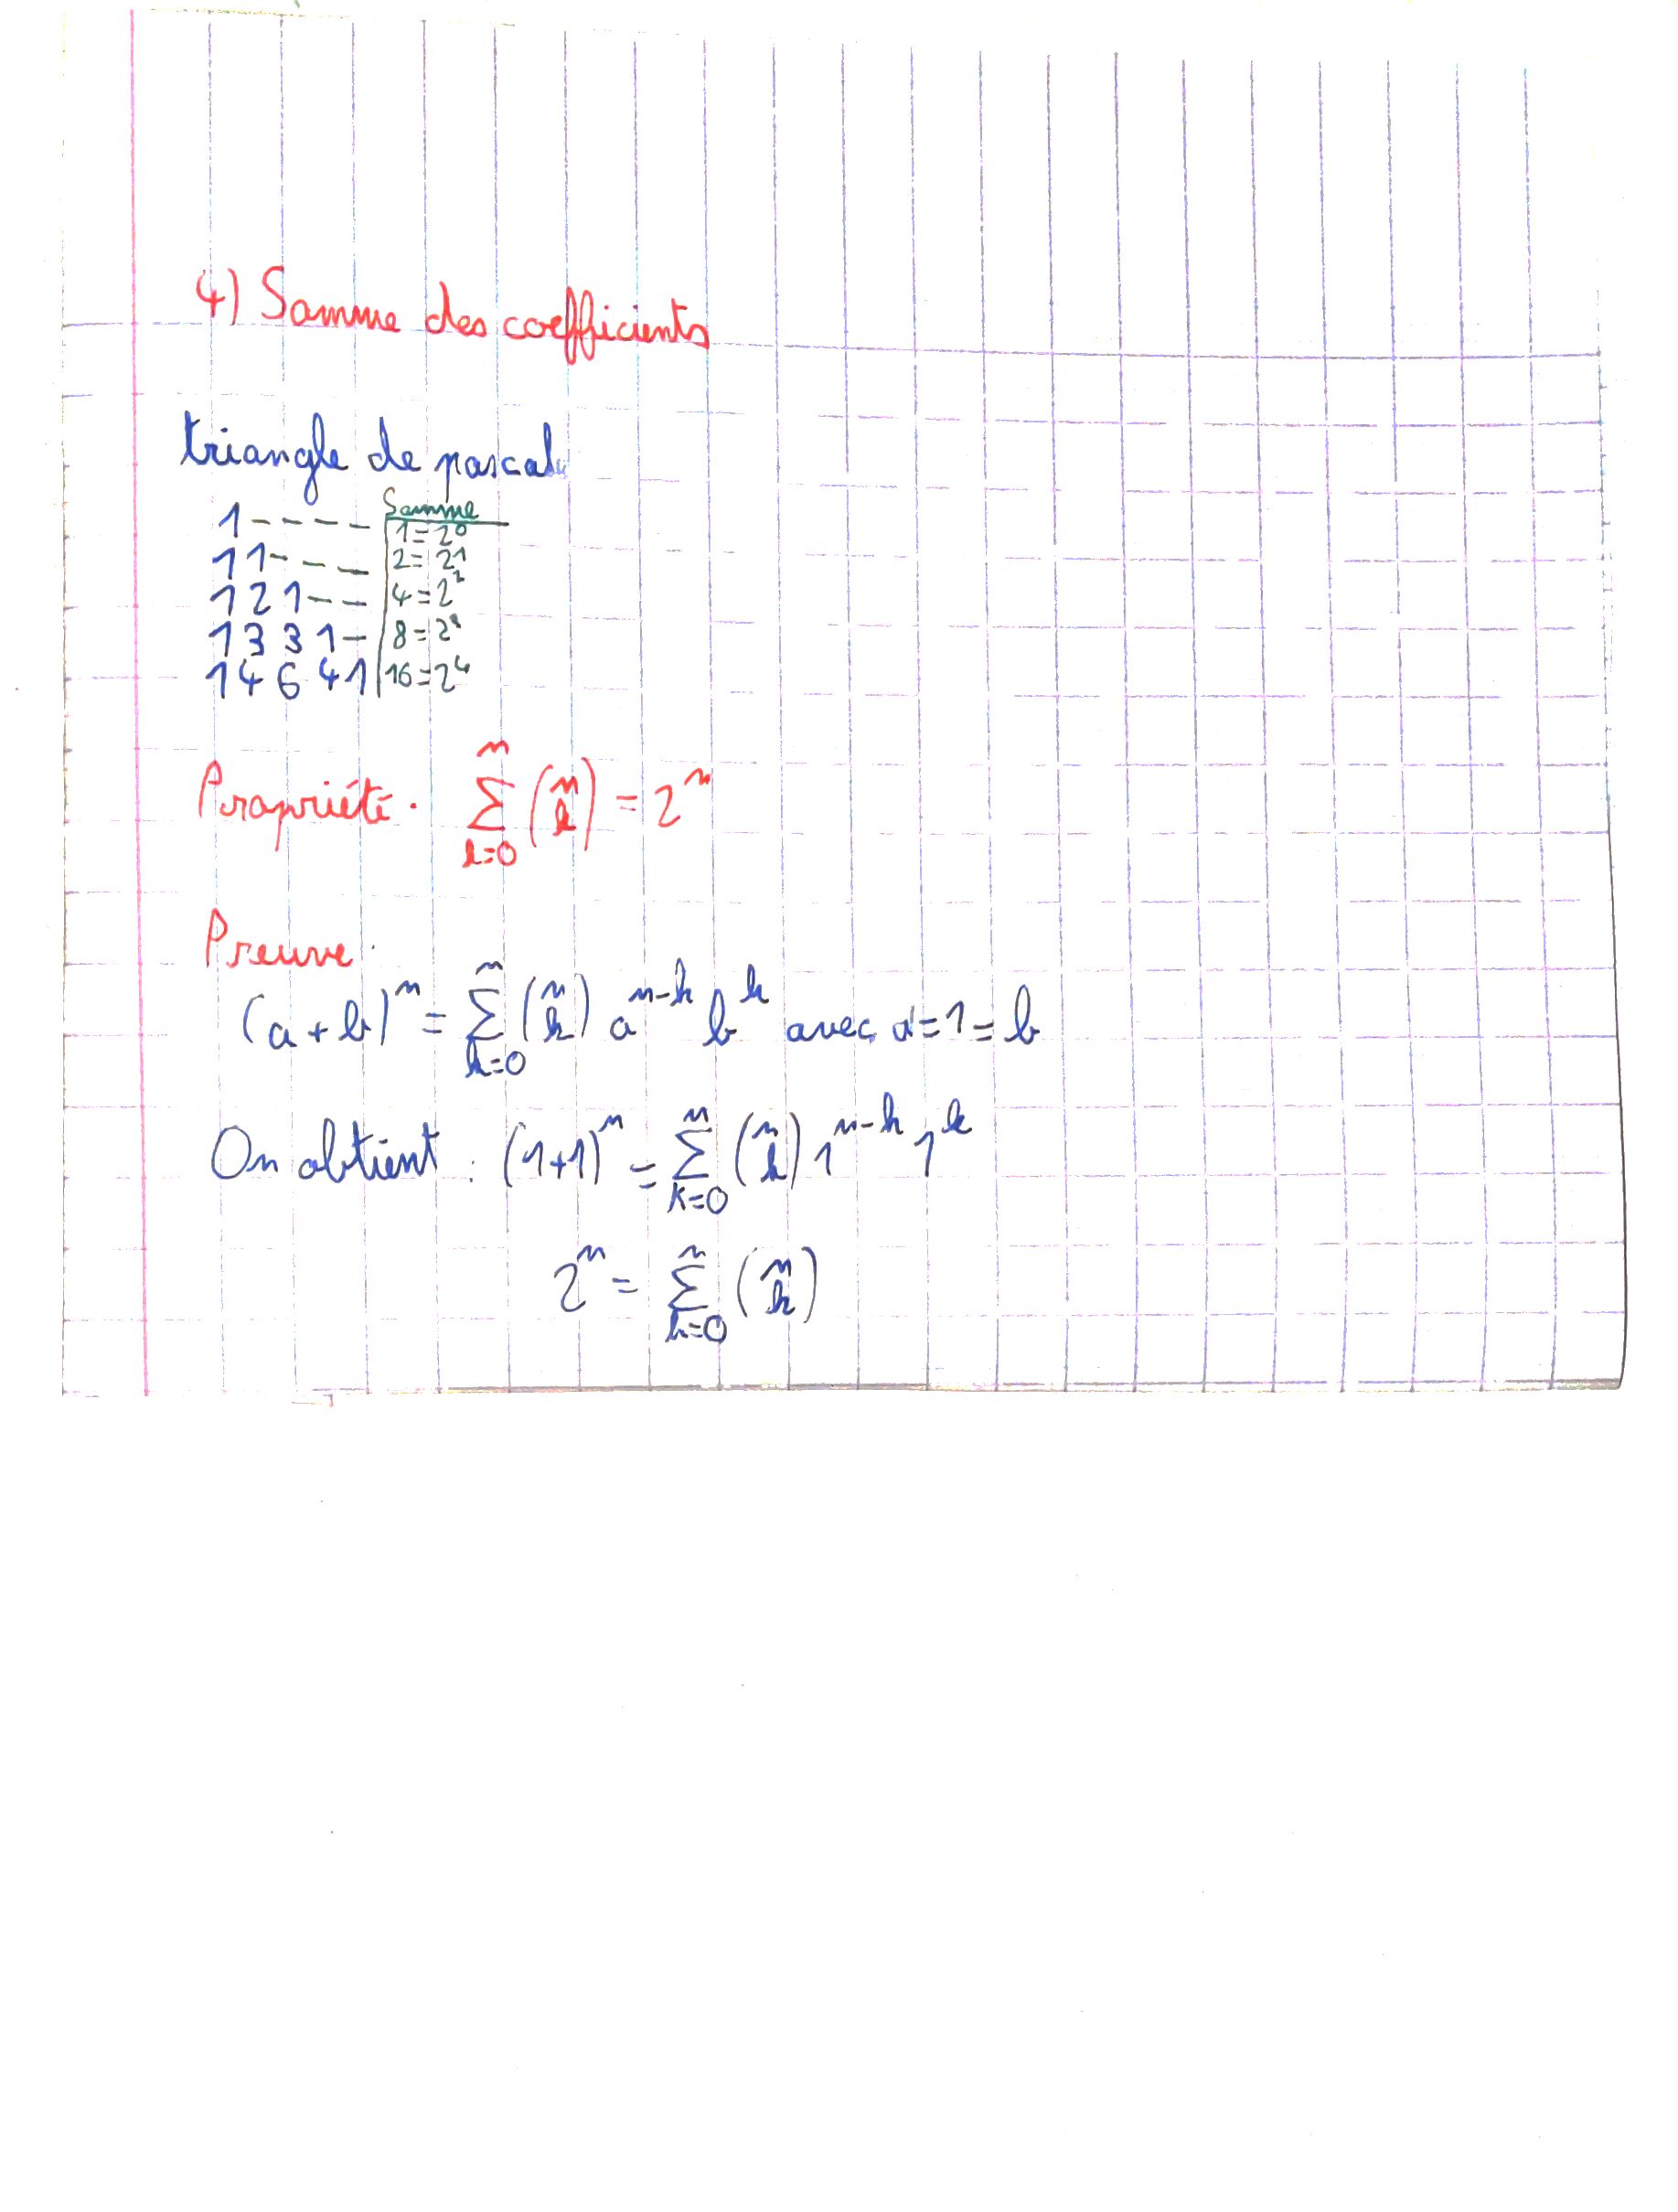 4) Somme des coefficients
triangle de pascal
Somme
1 - - - - 1 = 2⁰
1 1 - - - 2 = 2¹
1 2 1 - - 4 = 2²
1 3 3 1 - 8 = 2³
1 4 6 4 1 16 = 2⁴
Propriété. ∑_{k=0}^{n} (n k) = 2ⁿ
Preuve.
(a+b)ⁿ = ∑_{k=0}^{n} (n k) a^{n-k} b^k avec a=1=b
On obtient : (1+1)ⁿ = ∑_{k=0}^{n} (n k) 1^{n-k} 1^k
2ⁿ = ∑_{k=0}^{n} (n k)